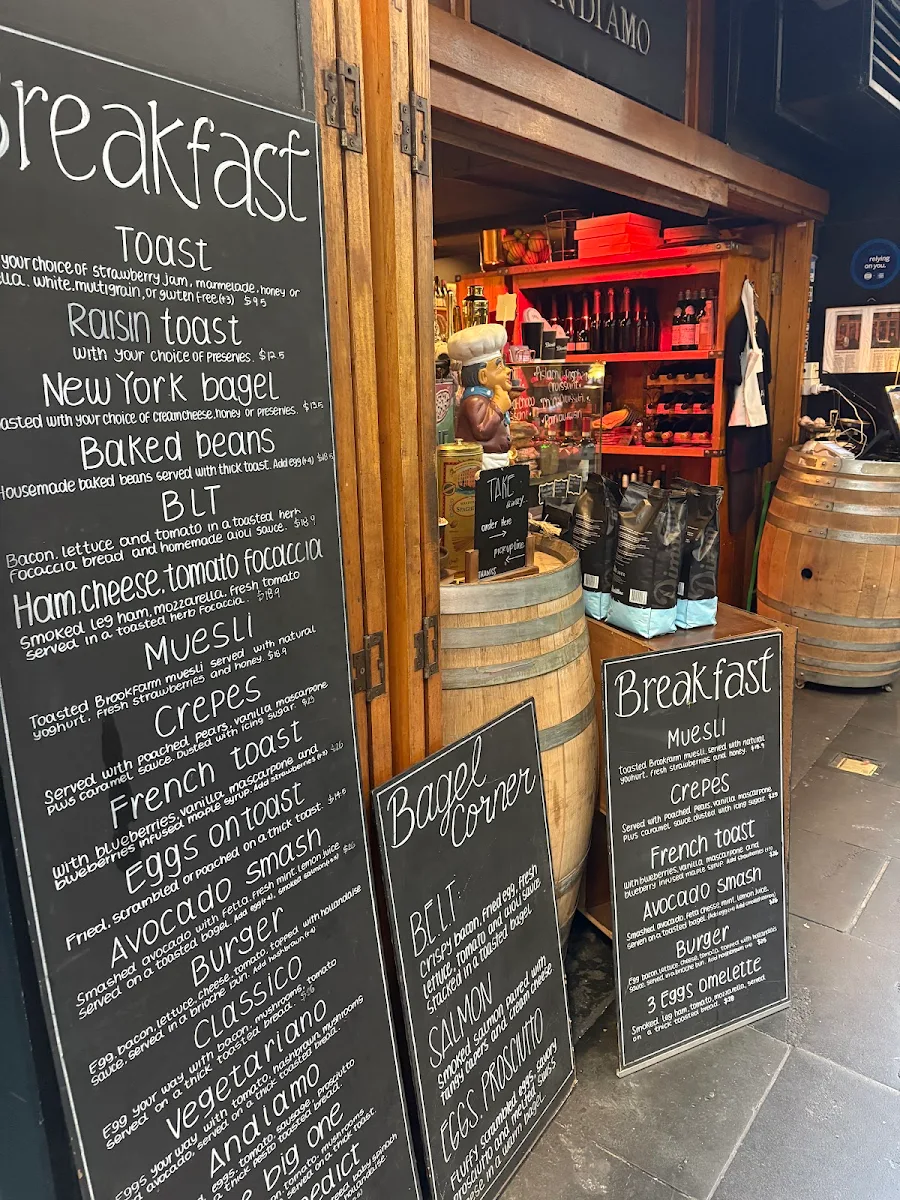 NDIAMO
Breakfast
Toast
your choice of strawberry jam, marmelade, honey or
white, multigrain, or gluten free (+3) $9.5
Raisin toast
with your choice of preserves. $12.5
New York bagel
with your choice of creamcheese, honey or preserves. $13.5
Baked beans
Housemade baked beans served with thick toast. Add egg (+4)
BLT
Bacon, lettuce and tomato in a toasted herb
focaccia bread and homemade aioli sauce. $18.9
Ham, cheese, tomato focaccia
Smoked leg ham, mozzarella, fresh tomato
served in a toasted herb focaccia. $18.9
Muesli
Toasted Brookfarm muesli served with natural
yoghurt, fresh strawberries and honey. $18.9
Crepes
Served with poached pears, vanilla mascarpone
plus caramel sauce. Dusted with icing sugar. $25
French toast
with blueberries, vanilla, mascarpone and
blueberries infused maple syrup. Add strawberries $26
Eggs on toast
Fried, scrambled or poached on a thick toast. $14.5
Avocado smash
Smashed avocado with fetta, fresh mint, lemon juice
served on a toasted bagel.
Burger
Egg, bacon, lettuce, cheese, tomato, topped with hollandaise
sauce, served in a brioche bun.
Classico
Egg your way with bacon, mushrooms, tomato
served on a thick toasted bread. $26
Vegetariano
Eggs your way with tomato, hashbrown, mushrooms
avocado, served on a thick toasted bread.
Andiamo
eggs, tomato, sausage, prosciutto
a thick pesto toasted bread.
big one
tomato, mushrooms
served on a thick toast.
baby spinach
hollandaise
TAKE
away
order Here
pick up
THANKS
relying
on you.
Bagel
Corner
BELT
crispy bacon, fried egg, fresh
lettuce, tomato and aioli sauce
stacked in a toasted bagel
SALMON
smoked salmon paired with
tangy capers and cream cheese
EGGS PROSCIUTTO
Fluffy scrambled eggs, savory
prosciutto and melted swiss
cheese in a warm bagel
Breakfast
Muesli
Toasted Brookfarm muesli, served with natural
yoghurt, fresh strawberries and honey. $18.9
Crepes
Served with poached pears, vanilla mascarpone
plus caramel sauce, dusted with icing sugar. $25
French toast
with blueberries, vanilla, mascarpone and
blueberry infused maple syrup. Add strawberries $26
Avocado smash
Smashed avocado, feta cheese, mint, lemon juice,
served on a toasted bagel.
Burger
Egg, bacon, lettuce, cheese, tomato, topped with hollandaise
sauce, served in a brioche bun. $26
3 Eggs omelette
Smoked leg ham, tomato, mozzarella, served
on a thick toasted bread. $28